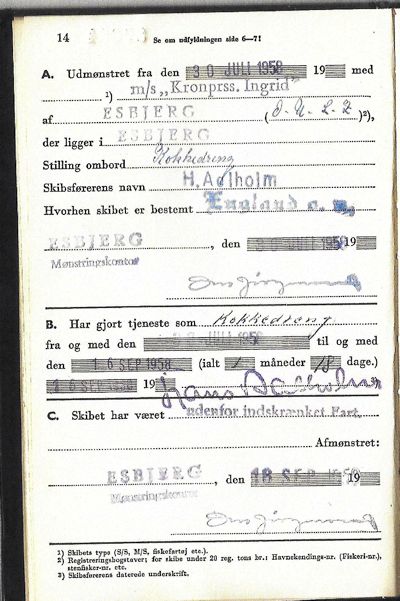 14
Se om udfyldningen side 6—7!
A. Udmønstret fra den 30 JULI 1958 19 med
¹) m/s „Kronprss. Ingrid”
af ESBJERG (O. U. L. Z )²),
der ligger i ESBJERG
Stilling ombord Kokkedreng
Skibsførerens navn H. Aalholm
Hvorhen skibet er bestemt England o. a.
ESBJERG , den 30 JULI 1958 19
Mønstringskontor
B. Har gjort tjeneste som Kokkedreng
fra og med den JULI 1958 til og med
den 16 SEP 1958 (ialt 1 måneder 18 dage.)
16 SEP 1958 19
C. Skibet har været udenfor indskrænket Fart.
Afmønstret:
ESBJERG , den 18 SEP 1958 19
Mønstringskontor
¹) Skibets type (S/S, M/S, fiskefartøj etc.).
²) Registreringsbogstaver; for skibe under 20 reg. tons br.: Havnekendings-nr. (Fiskeri-nr.),
stenfisker-nr. etc.
³) Skibsførerens daterede underskrift.